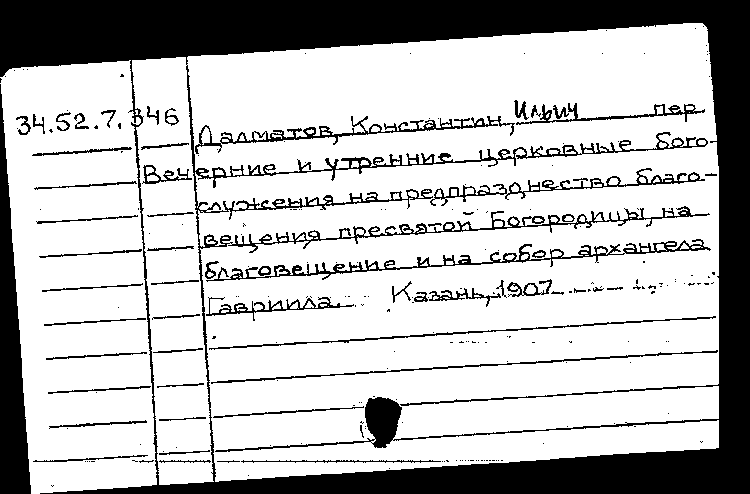 34.52.7.346
Далматов, Константин, Ильич пер
Вечерние и утренние церковные бого-
служения на предпразднество благо-
вещения пресвятой Богородицы, на
благовещение и на собор архангела
Гавриила. Казань, 1907